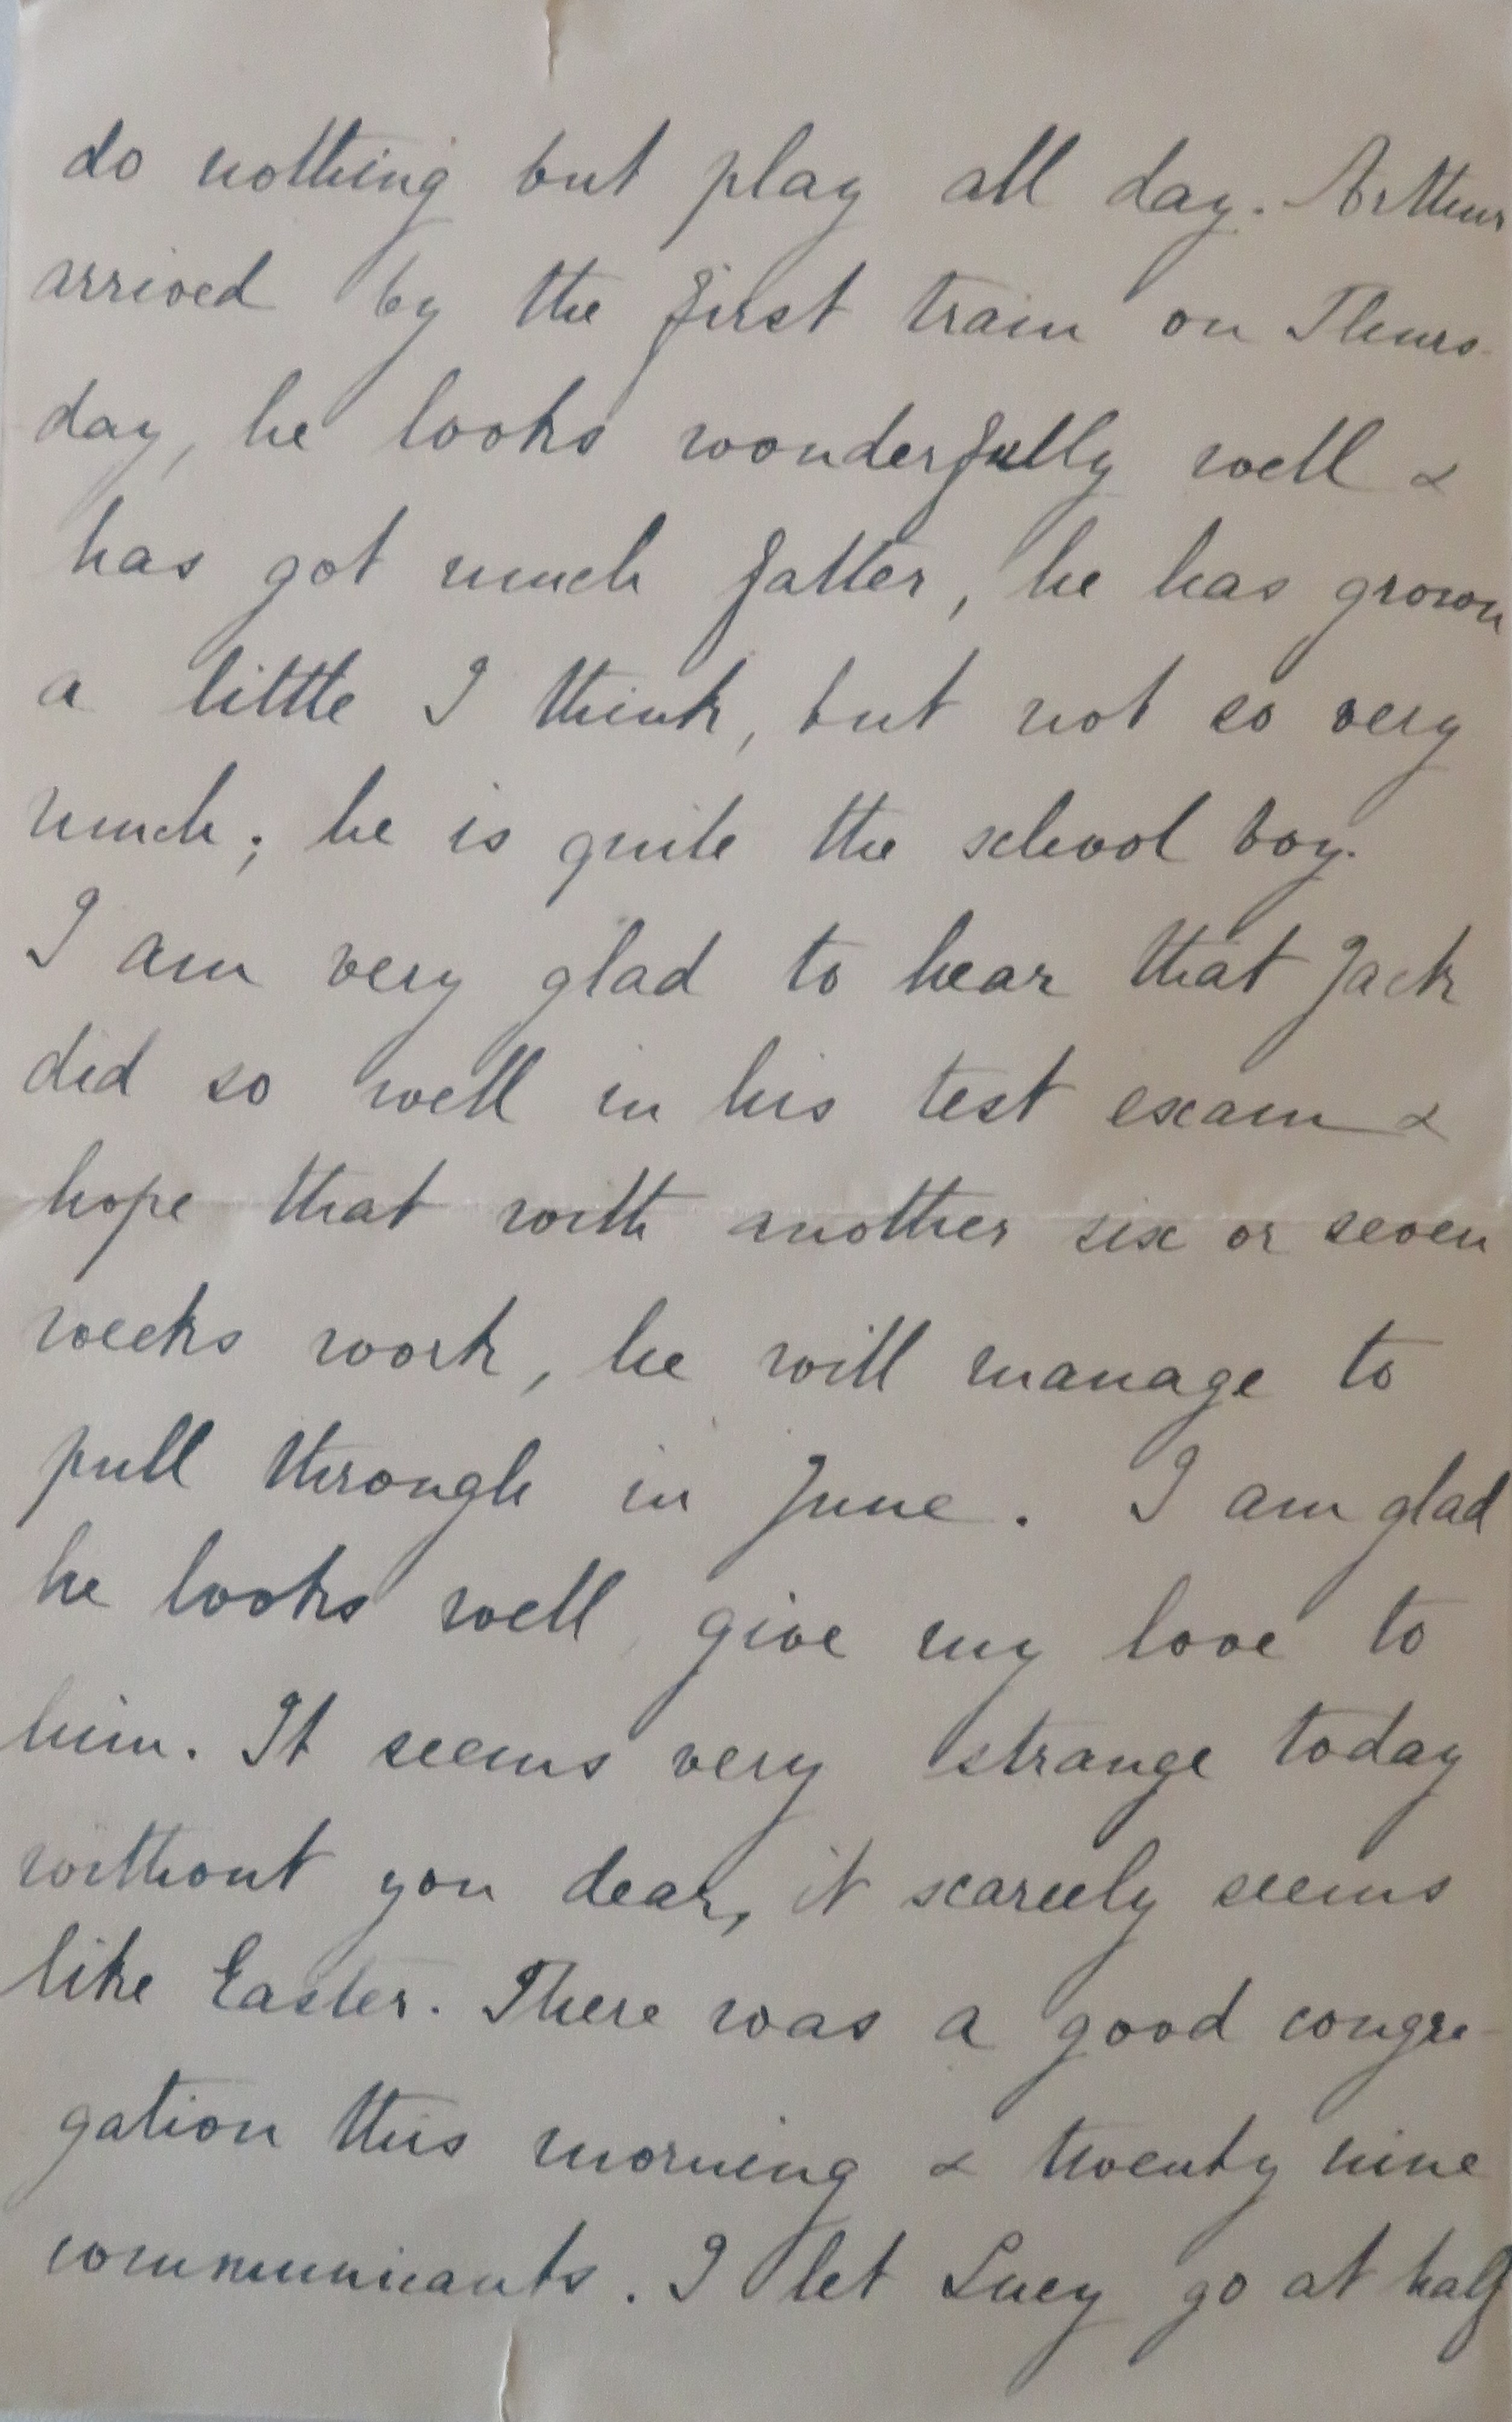 do nothing but play all day. Arthur
arrived by the first train on Thurs-
day, he looks wonderfully well &
has got much fatter, he has grown
a little I think, but not so very
much; he is quite the school boy.
I am very glad to hear that Jack
did so well in his test exam &
hope that with another six or seven
weeks work, he will manage to
pull through in June. I am glad
he looks well, give my love to
him. It seems very strange today
without you dear, it scarcely seems
like Easter. There was a good congre-
gation this morning & twenty nine
communicants. I let Lucy go at half